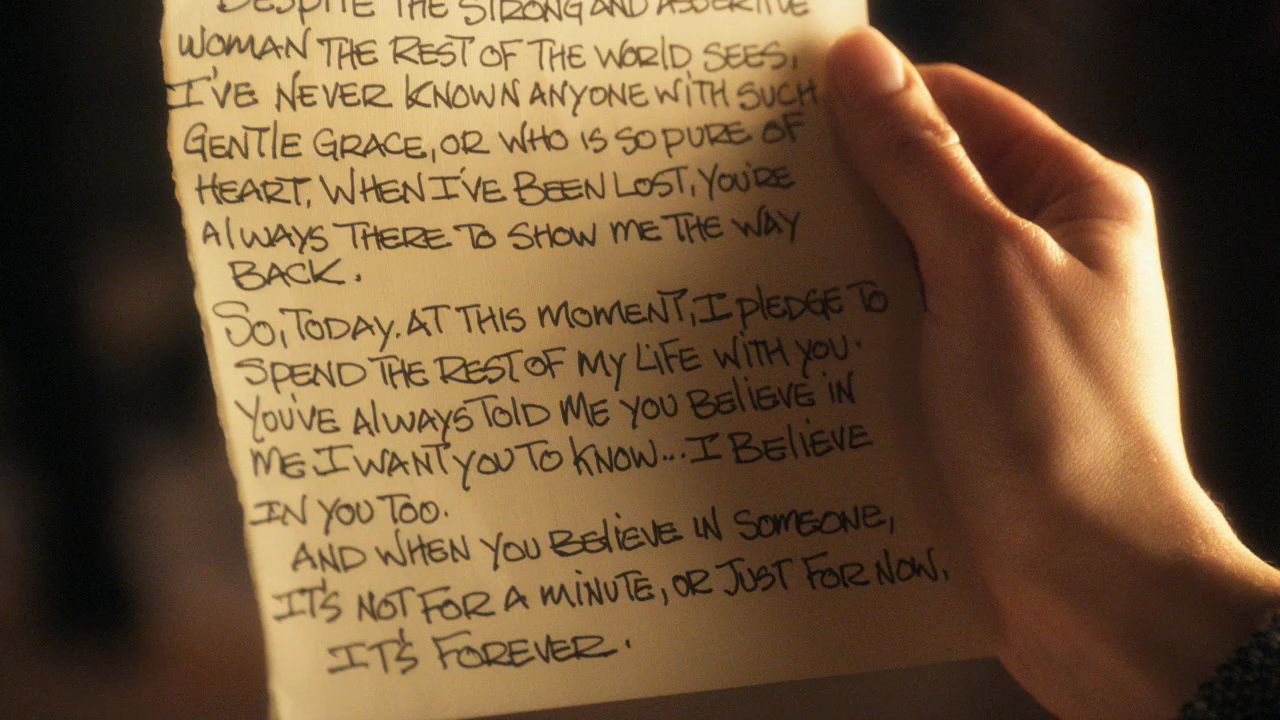 DESPITE THE STRONG AND ASSERTIVE
WOMAN THE REST OF THE WORLD SEES,
I'VE NEVER KNOWN ANYONE WITH SUCH
GENTLE GRACE, OR WHO IS SO PURE OF
HEART. WHEN I'VE BEEN LOST, YOU'RE
ALWAYS THERE TO SHOW ME THE WAY
BACK.
SO, TODAY. AT THIS MOMENT, I PLEDGE TO
SPEND THE REST OF MY LIFE WITH YOU.
YOU'VE ALWAYS TOLD ME YOU BELIEVE IN
ME. I WANT YOU TO KNOW... I BELIEVE
IN YOU TOO.
AND WHEN YOU BELIEVE IN SOMEONE,
IT'S NOT FOR A MINUTE, OR JUST FOR NOW.
IT'S FOREVER.